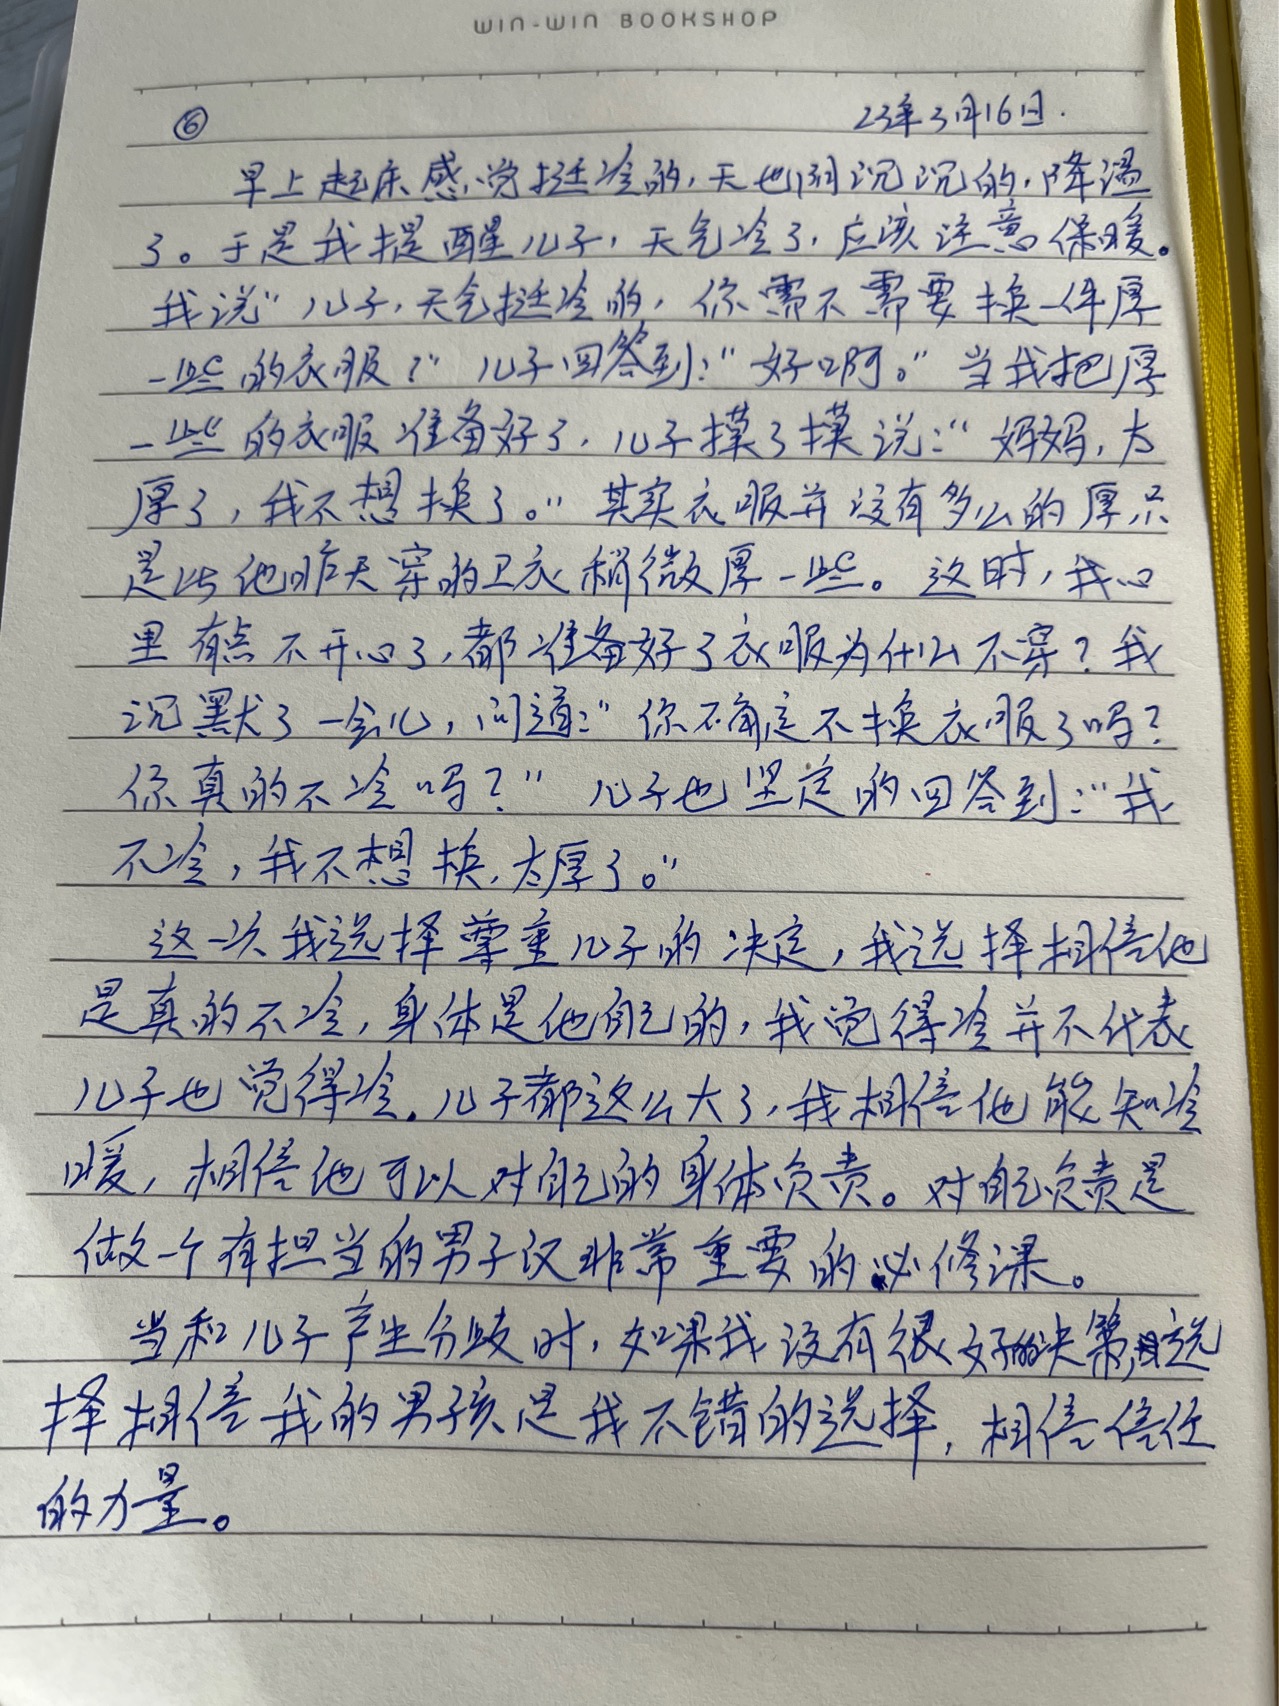 WIN-WIN BOOKSHOP
⑥ 23年3月16日.
早上起床感觉挺冷的,天也阴沉沉的,降温
了。于是我提醒儿子,天气冷了,应该注意保暖。
我说“儿子,天气挺冷的,你需不需要换一件厚
一些的衣服?”儿子回答到:“好啊。”当我把厚
一些的衣服准备好了,儿子摸了摸说:“妈妈,太
厚了,我不想换了。”其实衣服并没有多么的厚只
是比他昨天穿的卫衣稍微厚一些。这时,我心
里有点不开心了,都准备好了衣服为什么不穿?我
沉默了一会儿,问道:“你不确定不换衣服了吗?
你真的不冷吗?”儿子也坚定的回答到:“我
不冷,我不想换,太厚了。”
这一次我选择尊重儿子的决定,我选择相信他
是真的不冷,身体是他自己的,我觉得冷并不代表
儿子也觉得冷.儿子都这么大了,我相信他能知冷
暖,相信他可以对自己的身体负责。对自己负责是
做一个有担当的男子汉非常重要的必修课。
当和儿子产生分歧时,如果我没有很好的决策,选
择相信我的男孩是我不错的选择,相信信任
的力量。